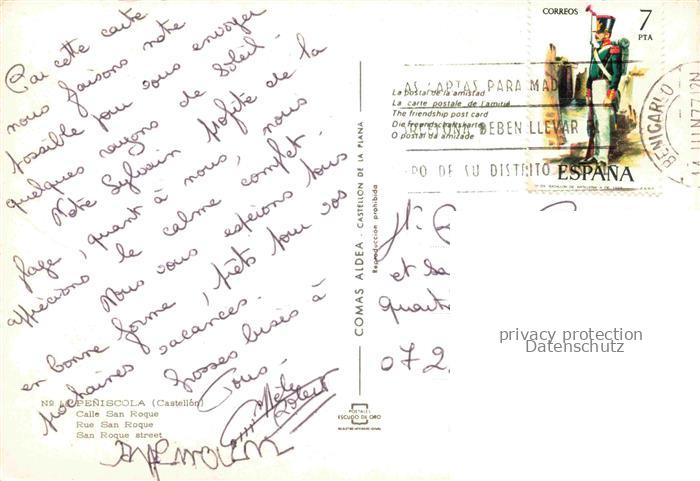 Par cette carte
nous faisons notre
possible pour vous envoyer
quelques rayons de soleil.
Notre Sylvain profite de la
plage, quant à nous, nous
apprécions le calme complet.
Nous vous espérons tous
en bonne forme, prêts pour vos
prochaines vacances.
Grosses bises à
Tous.
Nº PEÑISCOLA (Castellón)
Calle San Roque
Rue San Roque
San Roque street
COMAS ALDEA - CASTELLON DE LA PLANA
Reproducción prohibida
POSTALES
ESCUDO DE ORO
La postal de la amistad
La carte postale de l'amitié
The friendship post card
Die Freundschaftskarte
O postal da amizade
CARTAS PARA
DEBEN LLEVAR
DE SU DISTRITO
CORREOS
7
PTA
ESPAÑA
BENICARLO
et sa
07 2
privacy protection
Datenschutz